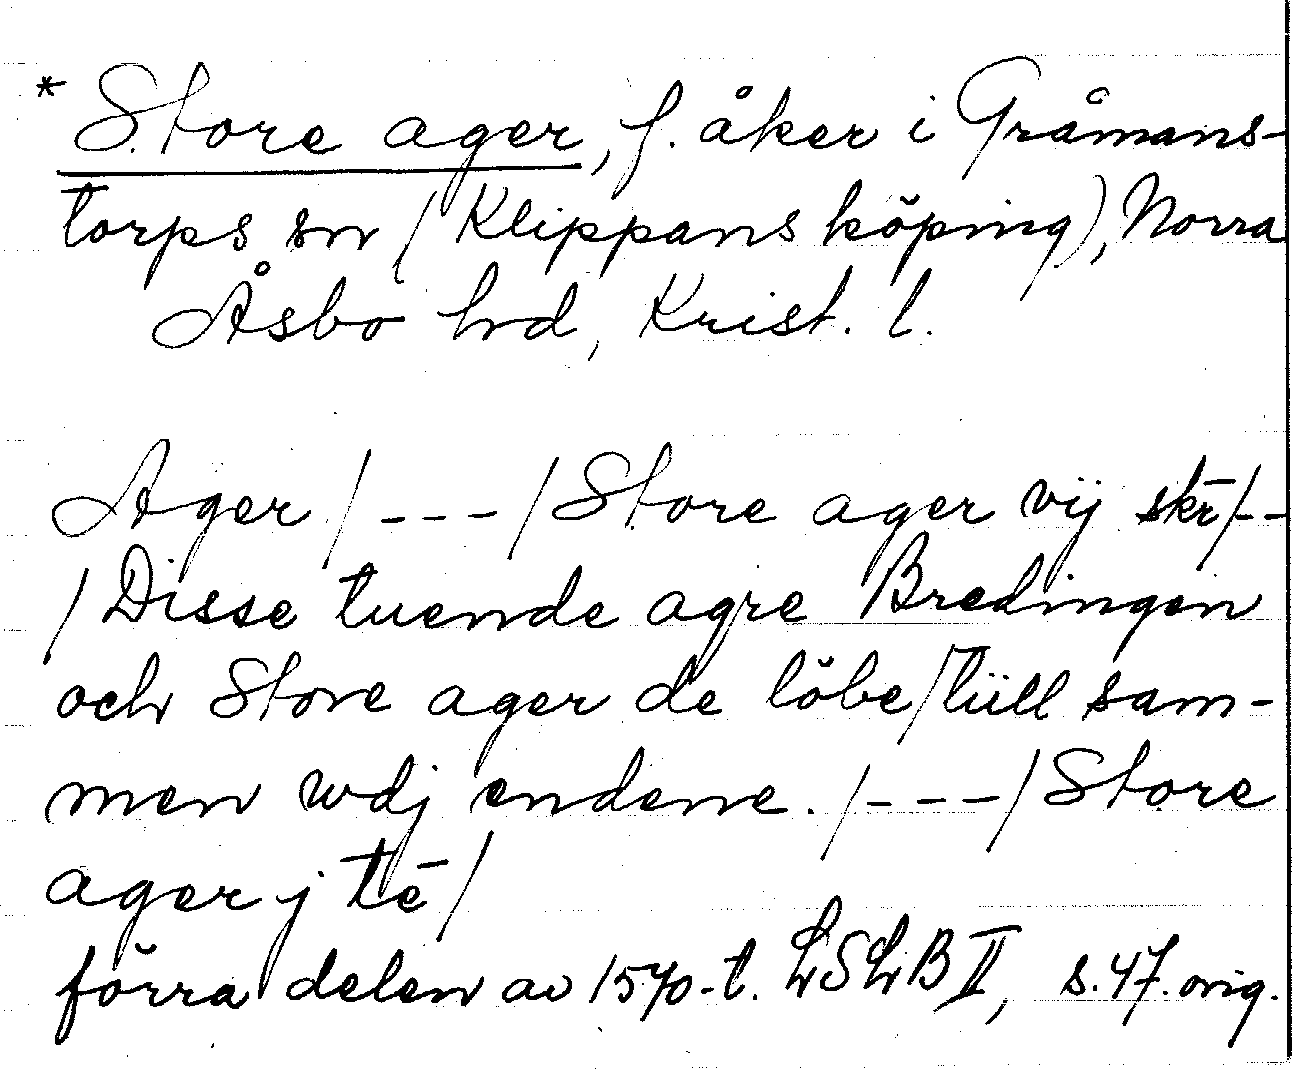 * Store ager, f. åker i Gråmans-
torps sn (Klippans köping), Norra
Åsbo hrd, Krist. l.
Ager /---/ Store ager vij skr̄/--
/Disse tuende agre Bredingen
och Store ager de löbe/tüll sam-
men wdj endene. /---/ Store
ager j tē/
förra delen av 1570-t. LSLB II, s. 47. orig.